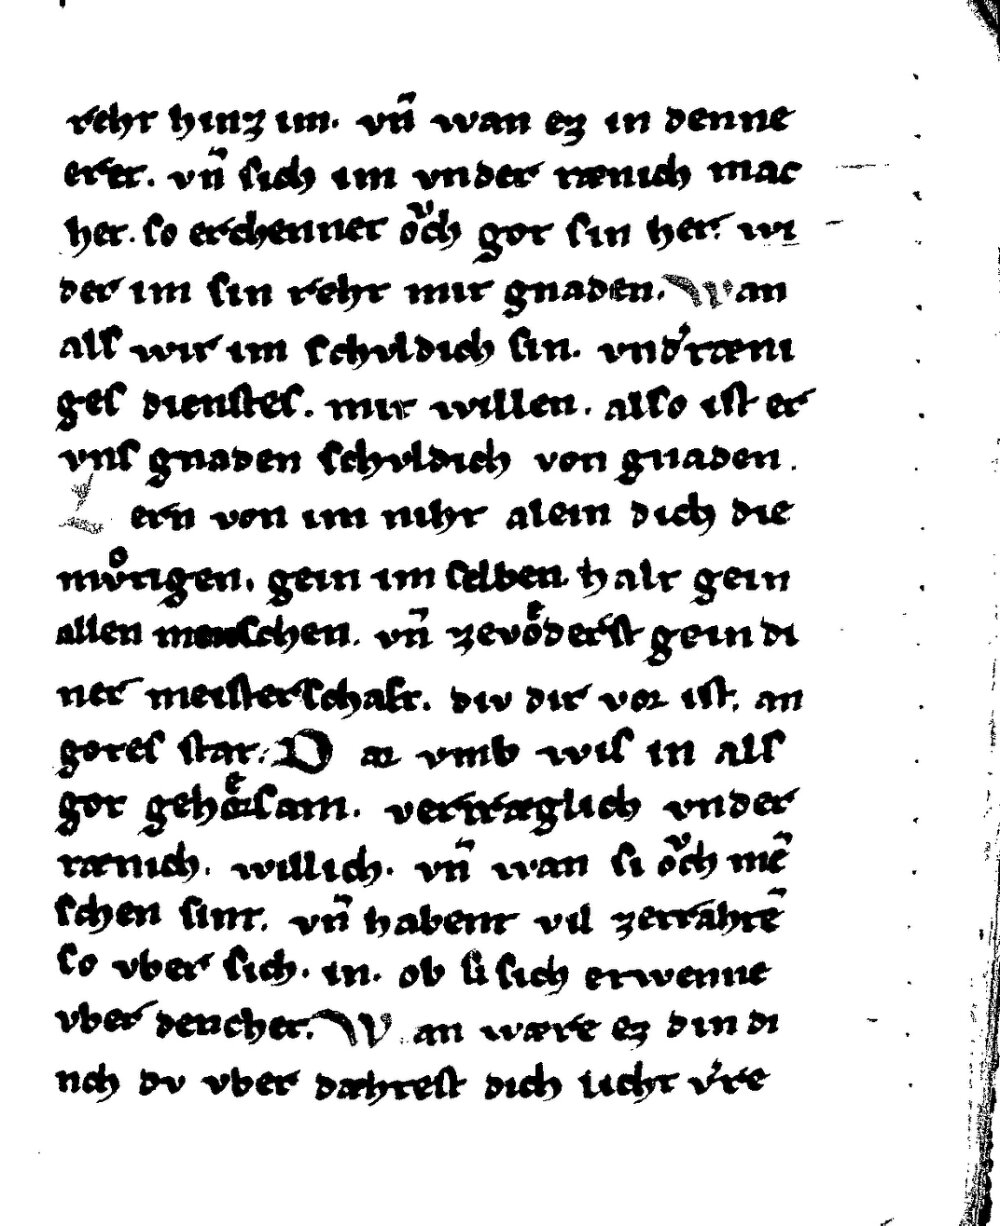 reht hinz im. vn̄ wan ez in denne
eret. vn̄ sich im vndertænich mac
het. so erchennet oͮch got sin her. wi
der im sin reht mit gnaden. Wan
als wir im schuldich sin. vnd'tæni
ges dienstes. mit willen. also ist er
vns gnaden schuldich von gnaden.
Lern von im niht alein dich die
mvͦtigen. gein im selben. halt gein
allen menschen. vn̄ zevoͤderst gein di
ner meisterschaft. div dir vor ist. an
gotes stat. Dar vmb wis in als
got gehoͤrsam. vertræglich vnder
tænich. willich. vn̄ wan si oͮch mē
schen sint. vn̄ habent vil zetrahtē
so vber sich. in. ob si sich etwenne
vber denchet. Wan wære ez din di
nch dv vber dæhtest dich licht v're